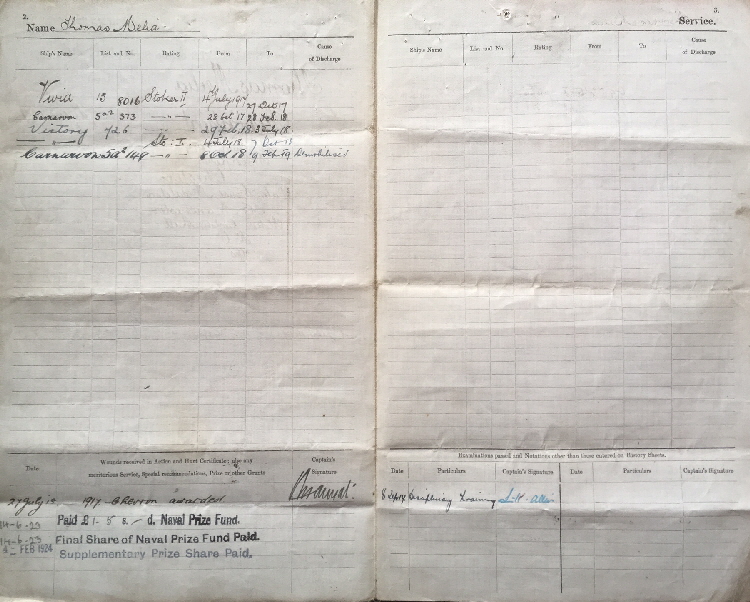 2.
Name Thomas
Ship's Name List and No. Rating From To Cause of Discharge
Vivid 13 8016 Stoker II 4 July 1917 27 Oct 17
5a2 373 — " — 28 Oct 17 28 Feb. 18
Victory 726 — " — 29 Feb. 18 3 July 18.
— " — Sto. I. 4 July 18 7 Oct 18
Carnarvon 149 — " — 8 Oct 18 19 Feb 19 Demobilised
Date Wounds received in Action and Hurt Certificate; also any meritorious Service, Special recommendations, Prize or other Grants Captain's Signature
July 1917 Chevron awarded
14-6-23 Paid £ 1 - 5 s. - d. Naval Prize Fund.
14-6-23 Final Share of Naval Prize Fund Paid.
FEB 1924 Supplementary Prize Share Paid.
3.
Service.
Ship's Name List and No. Rating From To Cause of Discharge
Examinations passed and Notations other than those entered on History Sheets.
Date Particulars Captain's Signature Date Particulars Captain's Signature
8 Training